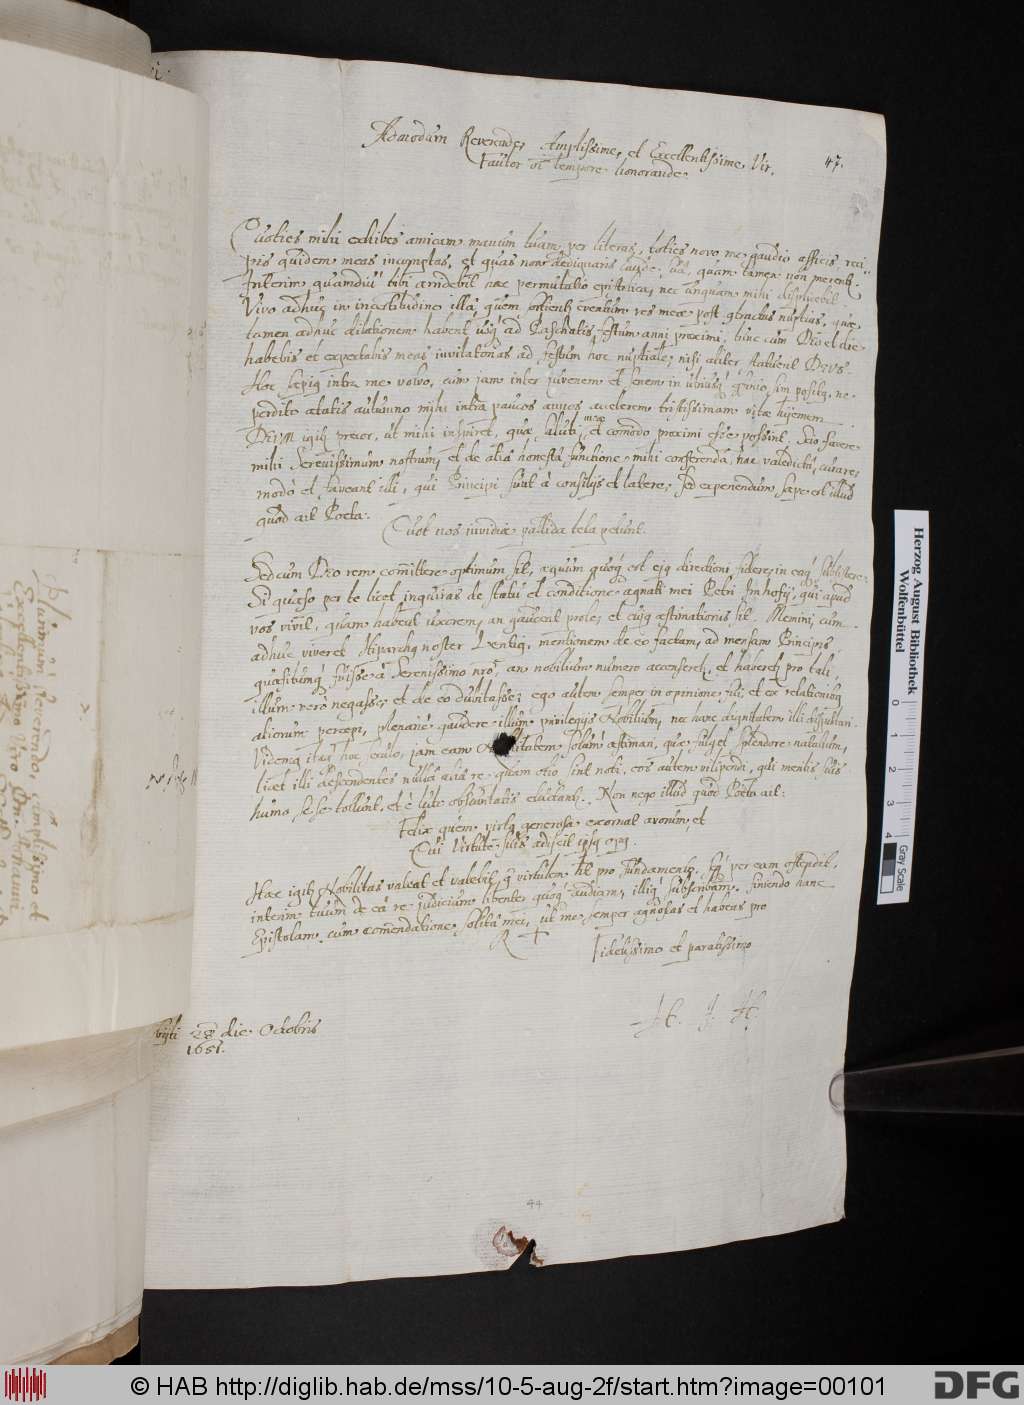 47.
Admodum Reverende, Amplissime, et Excellentissime Vir.
Fautor omni tempore honorande.
Quoties mihi exhibes amicam manum tuam per literas, toties novo me gaudio afficis, reci-
pis quidem meas incomptas, et quas non dedignaris laude, quam tamen non merentur.
Interim quamdiu tibi arridebit haec permutatio epistolica, nec unquam mihi displicebit.
Vivo adhuc in incertitudine illa, quem eventum res meae post contractas nuptias, quae
tamen adhuc dilationem habent usq ad Paschatis festum anni proximi, hinc cum Deo et die
habebis et expectabis meas invitatorias ad festum hoc nuptiale, nisi aliter statuerit DEUS.
Hoc saepius intra me volvo, cum jam inter juvenem et senem in positus, ne
perdito aetatis autumno mihi intra paucos annos accelerem tristissimam vitae hijemem.
DEUM igitur precor, ut mihi inspiret, quae saluti meae et comodo proximi esse possint. Scio favere
mihi Serenissimum nostrum, et de alia honesta functione mihi conferenda, hac valedictu, curare,
modo et faveant illi, qui Principi sunt à consilijs et latere, sed expenendum saepe est illud
quod ait Poeta.
Quot nos invidiae pallida tela petunt.
Sed cum Deo rem comittere optimum sit, aequum quoq est ejq directioni fidere, in eaq subsistere.
Si quaeso per te licet inquiras de statu et conditione agnati mei Petri Imhofij, qui apud
vos vivit, quam habeat uxorem, an gaudeat prole, et cujq aestimationis sit. Memini, cum
adhuc viveret Hiparchq noster Lxentiq, mentionem de eo factam, ad mensam Principis,
quaesitumq fuisse à Serenissimo nro, an nobilium numero accenseretr, et haberetr pro tali,
illum vero negasse, et de eo dubitasse; ego autem semper in opinione fui, et ex relationibq
aliorum percepi, plenarie gaudere illum privilegijs Nobilium, nec hanc dignitatem illi disputari.
Videmq itaq hoc seculo, jam eam Nobilitatem solum aestimari, quae fulget splendore natalium,
licet illi descendentes nulla alia re quam otio sint noti, eos autem vilipendi, qui mentis suis
humo sese tollunt, et è luto obscuritatis eluctantr. Non nego illud quod Poeta ait:
Felix quem virtq generosa exornat avorum, et
Qui Virtute suis adijcit ipsq opq.
Haec igitr Nobilitas valeat et valebit, q virtutem sit pro fundamento per eam ostendit,
interim tuum de ea re judicium libenter quoq audiam, illiq subscribam. Finiendo hanc
Epistolam cum comendatione solita mei, ut me semper agnoscas et habeas pro
Fidelissimo et paratissimo
H. J. H.
28 die Octobris
1651.
44
Plurimum Reverendo, Amplissimo et
Excellentissimo Viro Dn.
Herzog August Bibliothek
Wolfenbüttel
0 1 2 3 4
Gray Scale
© HAB http://diglib.hab.de/mss/10-5-aug-2f/start.htm?image=00101
DFG